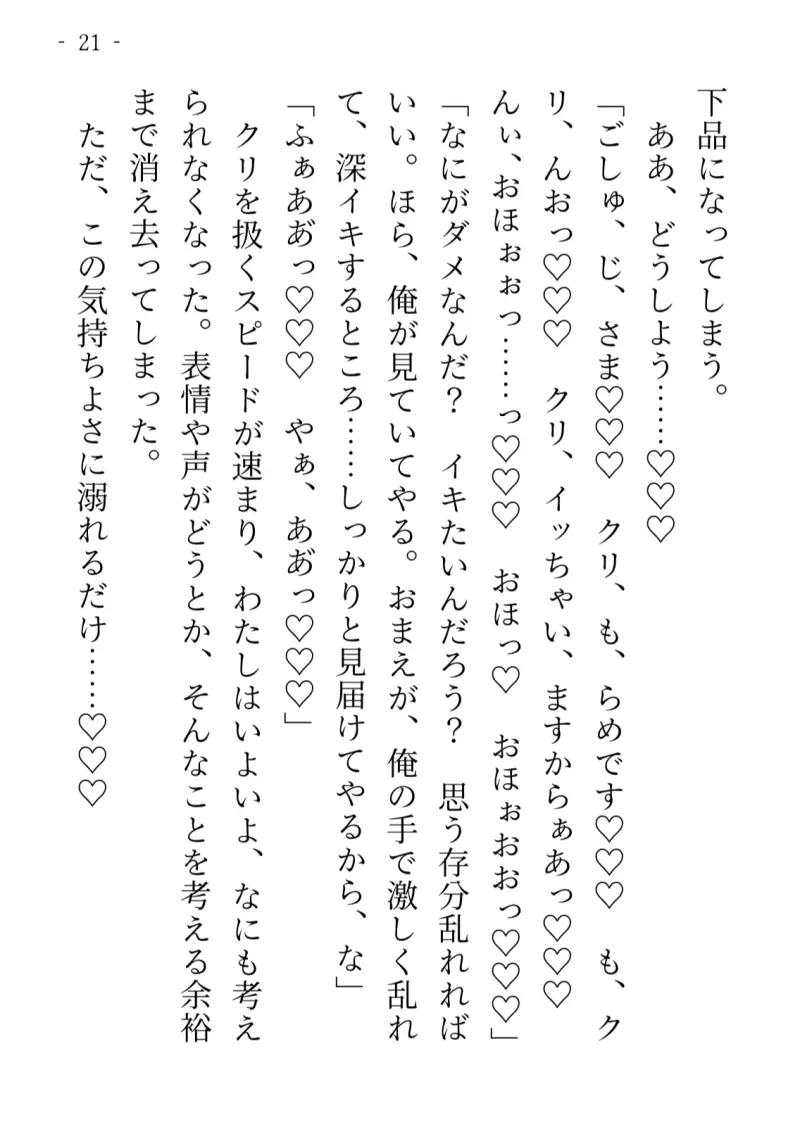 - 21 -
下品になってしまう。
ああ、どうしよう……♡♡♡
「ごしゅ、じ、さま♡♡♡　クリ、も、らめです♡♡♡　も、ク
リ、んおっ♡♡♡　クリ、イッちゃい、ますからぁあっ♡♡♡
んぃ、おほぉぉっ……っ♡♡♡　おほっ♡　おほぉおおっ♡♡♡」
「なにがダメなんだ？　イキたいんだろう？　思う存分乱れれば
いい。ほら、俺が見ていてやる。おまえが、俺の手で激しく乱れ
て、深イキするところ……しっかりと見届けてやるから、な」
「ふぁああ゙っ♡♡♡　やぁ、ああ゙っ♡♡♡」
クリを扱くスピードが速まり、わたしはいよいよ、なにも考え
られなくなった。表情や声がどうとか、そんなことを考える余裕
まで消え去ってしまった。
ただ、この気持ちよさに溺れるだけ……♡♡♡